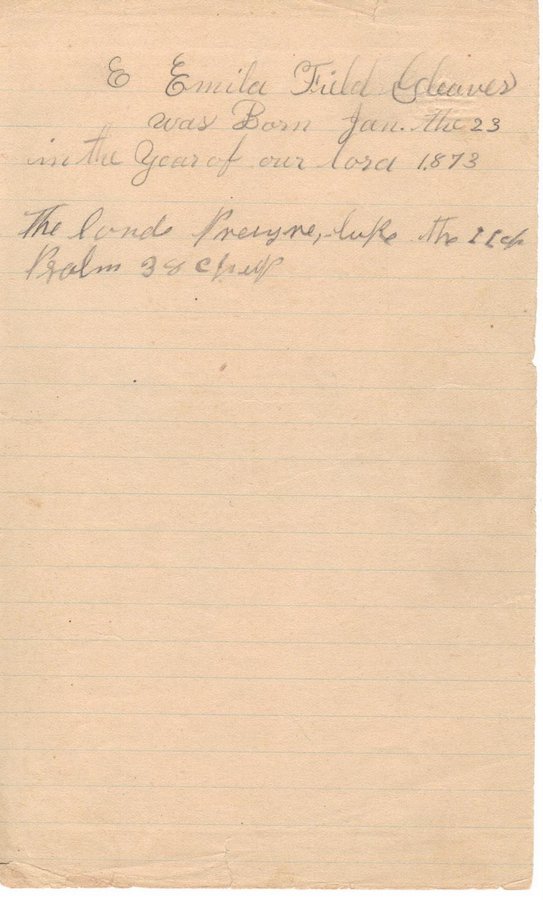 E Emila Field Cleaver
was Born Jan. the 23
in the Year of our lord 1873
The londs Preyre, luke the 11 ch
Psalm 38